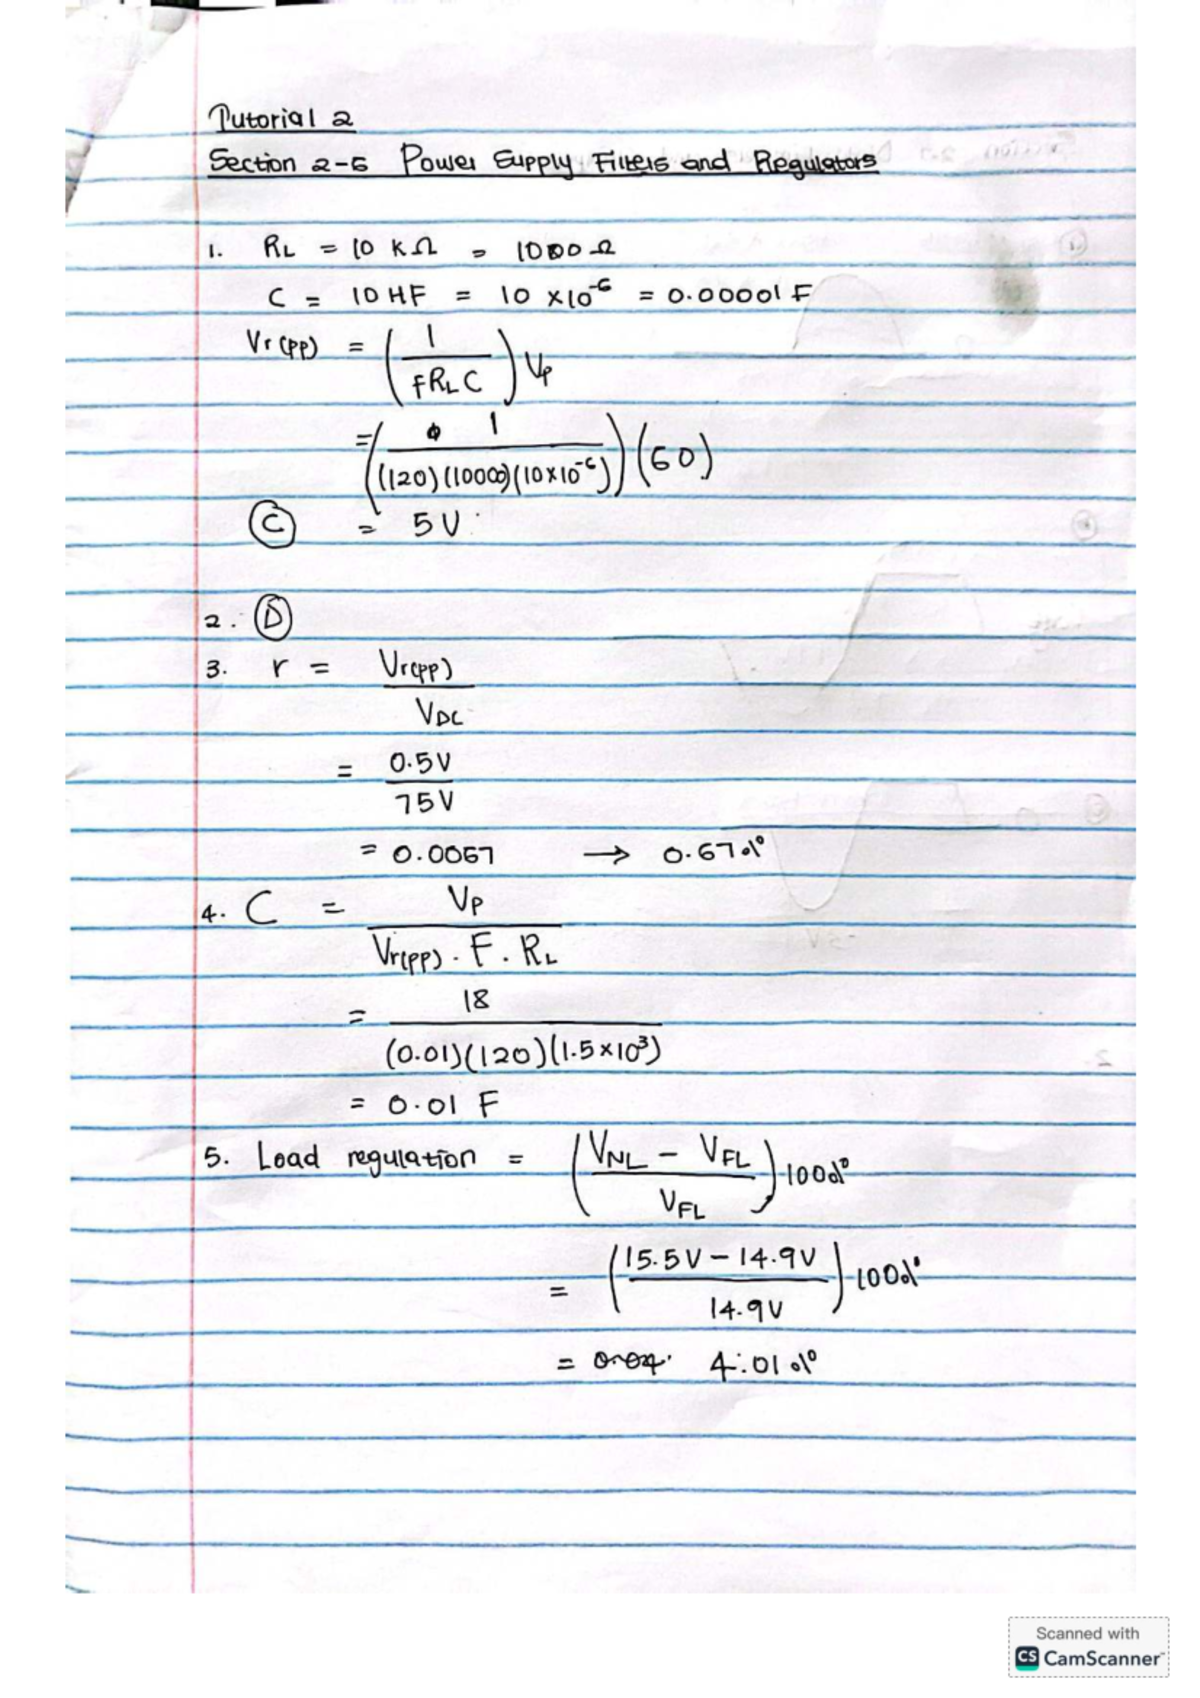 Tutorial 2
Section 2-6 Power Supply Filters and Regulators
1. RL = 10 kΩ = 1000 Ω
C = 10 μF = 10 × 10^-6 = 0.00001 F
Vr(pp) = (1 / fRLC) Vp
= (1 / (120)(10000)(10×10^-6)) (60)
(C) = 5V
2. (D)
3. r = Vr(pp) / VDC
= 0.5V / 75V
= 0.0067 → 0.67%
4. C = Vp / Vr(pp) . F . RL
= 18 / (0.01)(120)(1.5×10^3)
= 0.01 F
5. Load regulation = (VNL - VFL / VFL) 100%
= (15.5V - 14.9V / 14.9V) 100%
= 4.01%
Scanned with
CS CamScanner